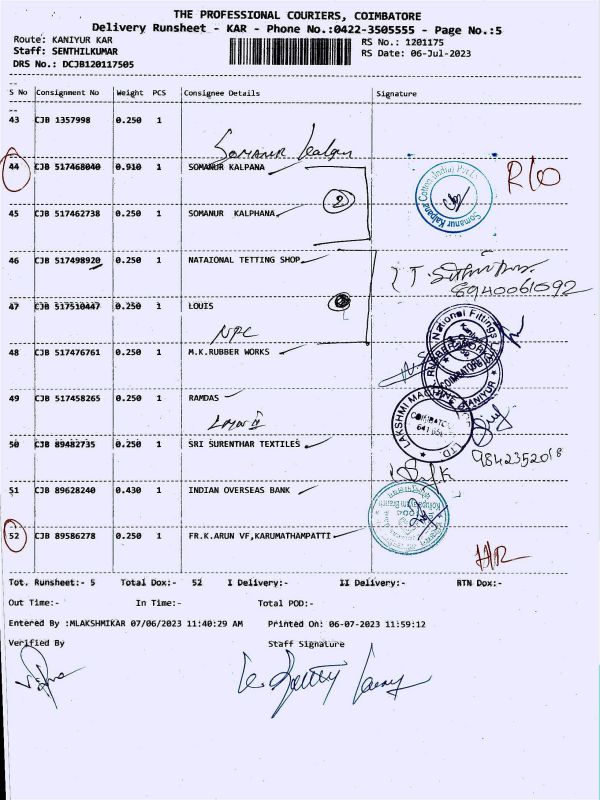 THE PROFESSIONAL COURIERS, COIMBATORE
Delivery Runsheet - KAR - Phone No.:0422-3505555 - Page No.:5
Route: KANIYUR KAR
RS No.: 1201175
Staff: SENTHILKUMAR
RS Date: 06-Jul-2023
DRS No.: DCJB120117505
S No Consignment No Weight PCS Consignee Details Signature
43 CJB 1357998 0.250 1
SOMANUR
44 CJB 517468040 0.910 1 SOMANUR KALPANA
Somanur Kalpana Cotton (India) Pvt L
45 CJB 517462738 0.250 1 SOMANUR KALPHANA
2
46 CJB 517498920 0.250 1 NATAIONAL TETTING SHOP
8940061092
47 CJB 517510447 0.250 1 LOUIS
National Fittings
NPC
48 CJB 517476761 0.250 1 M.K.RUBBER WORKS
49 CJB 517458265 0.250 1 RAMDAS
LAKSHMI MACHINE LTD.
50 CJB 89482735 0.250 1 SRI SURENTHAR TEXTILES
9842352018
51 CJB 89628240 0.430 1 INDIAN OVERSEAS BANK
52 CJB 89586278 0.250 1 FR.K.ARUN VF,KARUMATHAMPATTI
Tot. Runsheet:- 5 Total Dox:- 52 I Delivery:- II Delivery:- RTN Dox:-
Out Time:- In Time:- Total POD:-
Entered By :MLAKSHMIKAR 07/06/2023 11:40:29 AM Printed On: 06-07-2023 11:59:12
Verified By Staff Signature